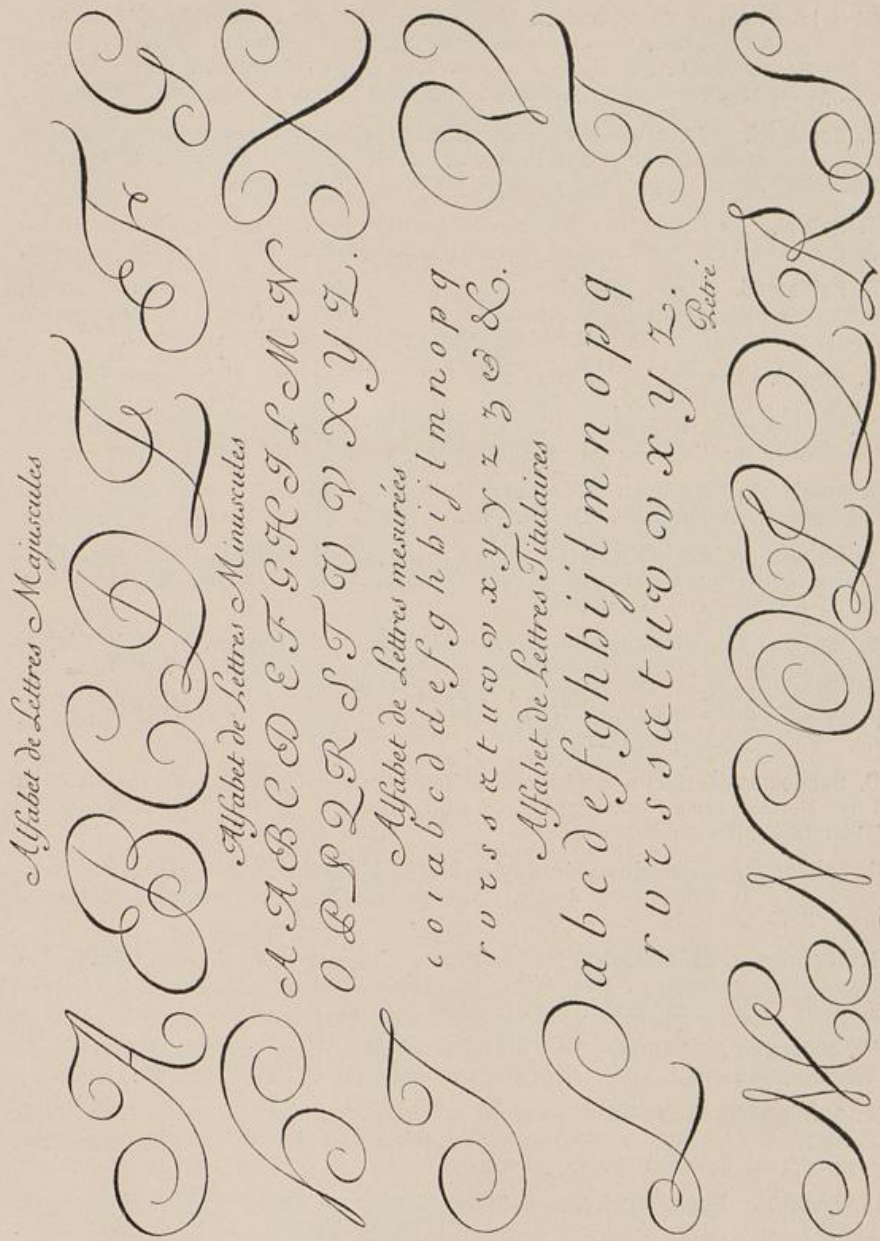 Alfabet de Lettres Majuscules
A B C D E F G
Alfabet de Lettres Minuscules
A A B C D E F G H I L M N
O P P Q R S T V V X Y Z.
Alfabet de Lettres mesurées
c o ı a b c d d e f g h h i j l m n o p q
r v r s s st t u v v x y y z z & &.
Alfabet de Lettres Titulaires
a b c d e f g h h i j l m n o p q
r v r s s st t u v v x y z.
Petré
M N O P Q R S